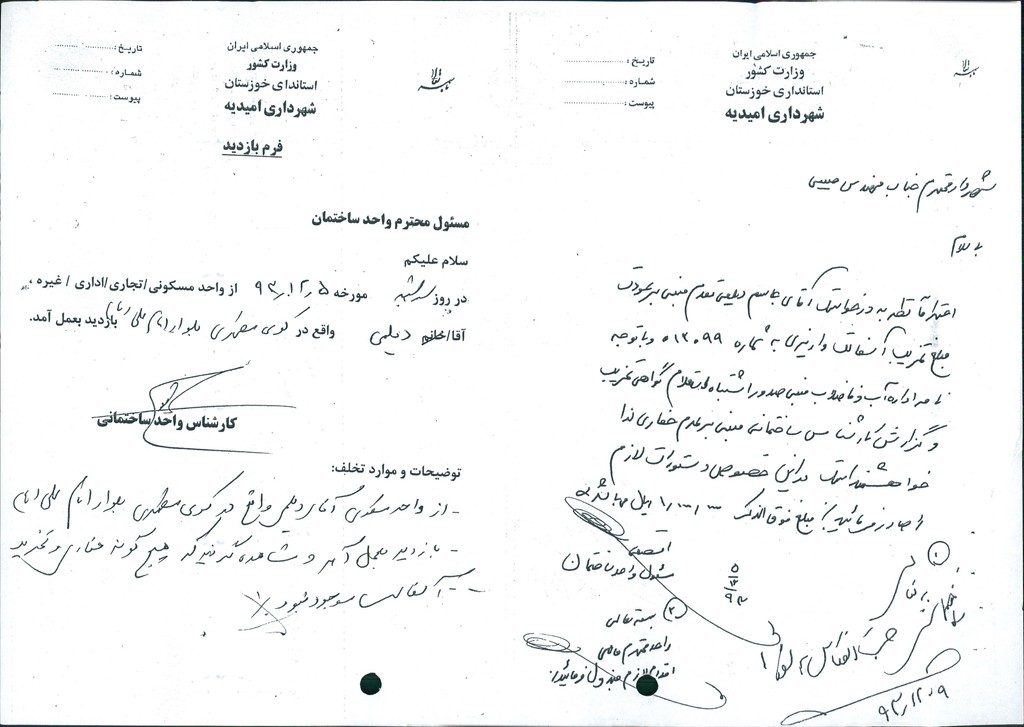 جمهوری اسلامی ایران
وزارت کشور
استانداری خوزستان
شهرداری امیدیه
تاریخ :
شماره :
پیوست :
شهردار محترم جناب مهندس حبیبی
با سلام
احتراماً نظر به درخواست آقای جاسم دیلمی مبنی بر عودت
مبلغ تخریب آسفالت واریزی به شماره ۰۱۳۰۹۹ و با توجه
نامه اداره آب و فاضلاب مبنی صدور اشتباه استعلام گواهی تخریب
و گزارش کارشناس ساختمانی مبنی بر عدم حفاری لذا
خواهشمند است در این خصوص دستورات لازم
را صادر فرمائید. مبلغ فوق الذکر ریال میباشد
مسئول واحد ساختمان
۵
۱۲
۹۳
۱
۲
بسمه تعالی
واحد محترم مالی
اقدام لازم مبذول فرمائید.
۹۳/۱۲/۰۹
جمهوری اسلامی ایران
وزارت کشور
استاندای خوزستان
شهرداری امیدیه
تاریخ :
شماره :
پیوست :
فرم بازدید
مسئول محترم واحد ساختمان
سلام علیکم
در روز سه شنبه مورخه ۹۳/۱۲/۵ از واحد مسکونی/تجاری/اداری / غیره ،
آقا/خانم دیلمی واقع در کوی مطهری بلوار امام علی بازدید بعمل آمد.
کارشناس واحد ساختمانی
توضیحات و موارد تخلف:
- از واحد مسکونی آقای دیلمی واقع در کوی مطهری بلوار امام علی
- بازدید بعمل آمد و مشاهده گردید که هیچ گونه حفاری و تخریب
آسفالت موجود نبود